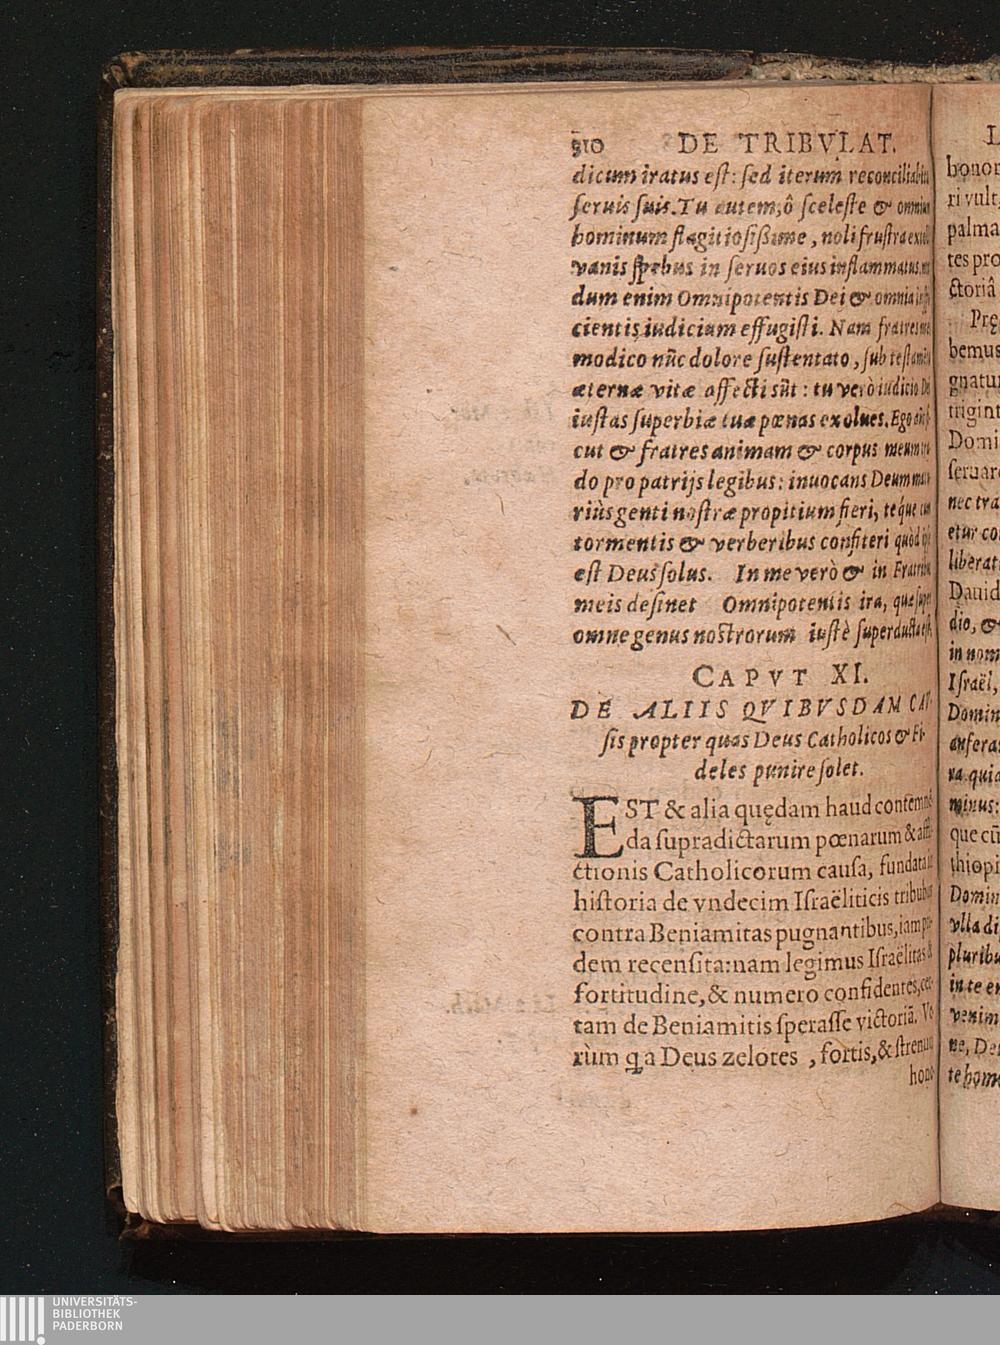 910 DE TRIBVLAT.
dicum iratus eſt: ſed iterum reconciliabitur
ſeruis ſuis. Tu autem, ô ſceleſte & omnium
hominum flagitioſißime, noli fruſtra extolli
vanis ſpebus in ſeruos eius inflammatus,
dum enim Omnipotentis Dei & omnia
cientis, iudicium effugiſti. Nam fratres mei
modico nũc dolore ſuſtentato, ſub
æternæ vitæ affecti sũt: tu verò iudicio Dei
iuſtas ſuperbiæ tuæ pœnas exolues. Ego
cut & fratres animam & corpus meum
do pro patrijs legibus: inuocans Deum
riùs genti noſtræ propitium fieri, téque cum
tormentis & verberibus confiteri quòd ipſe
eſt Deus ſolus. In me verò & in Fratribus
meis deſinet Omnipotentis ira, quæ
omne genus noſtrorum iuſtè ſuperducta eſt.
CAPVT XI.
DE ALIIS QVIBVSDAM CAV-
ſis propter quas Deus Catholicos & Fi-
deles punire ſolet.
EST & alia quędam haud contemnē-
da ſupradictarum pœnarum & affli-
ctionis Catholicorum cauſa, fundata in
hiſtoria de vndecim Iſraëliticis tribubus
contra Beniamitas pugnantibus, iam pri-
dem recenſita: nam legimus Iſraëlitas &
fortitudine, & numero confidentes, cer-
tam de Beniamitis ſperaſſe victoriā. Ve-
rùm qa Deus zelotes, fortis, & ſtrenuus
hono-
L
honor
ri vult,
palma
tes pro
ctoriâ
Pre
bemus
gnatur
trigint
Domi
ſeruare
nec tra
etur co
liberat
Dauid
dio, &
in nom
Iſraël,
Domin
auferas
ra quia
minus:
que cũ
thiopi
Domin
vlla di
pluribu
in te e
venim
ne, De
te homo
UNIVERSITÄTS-
BIBLIOTHEK
PADERBORN